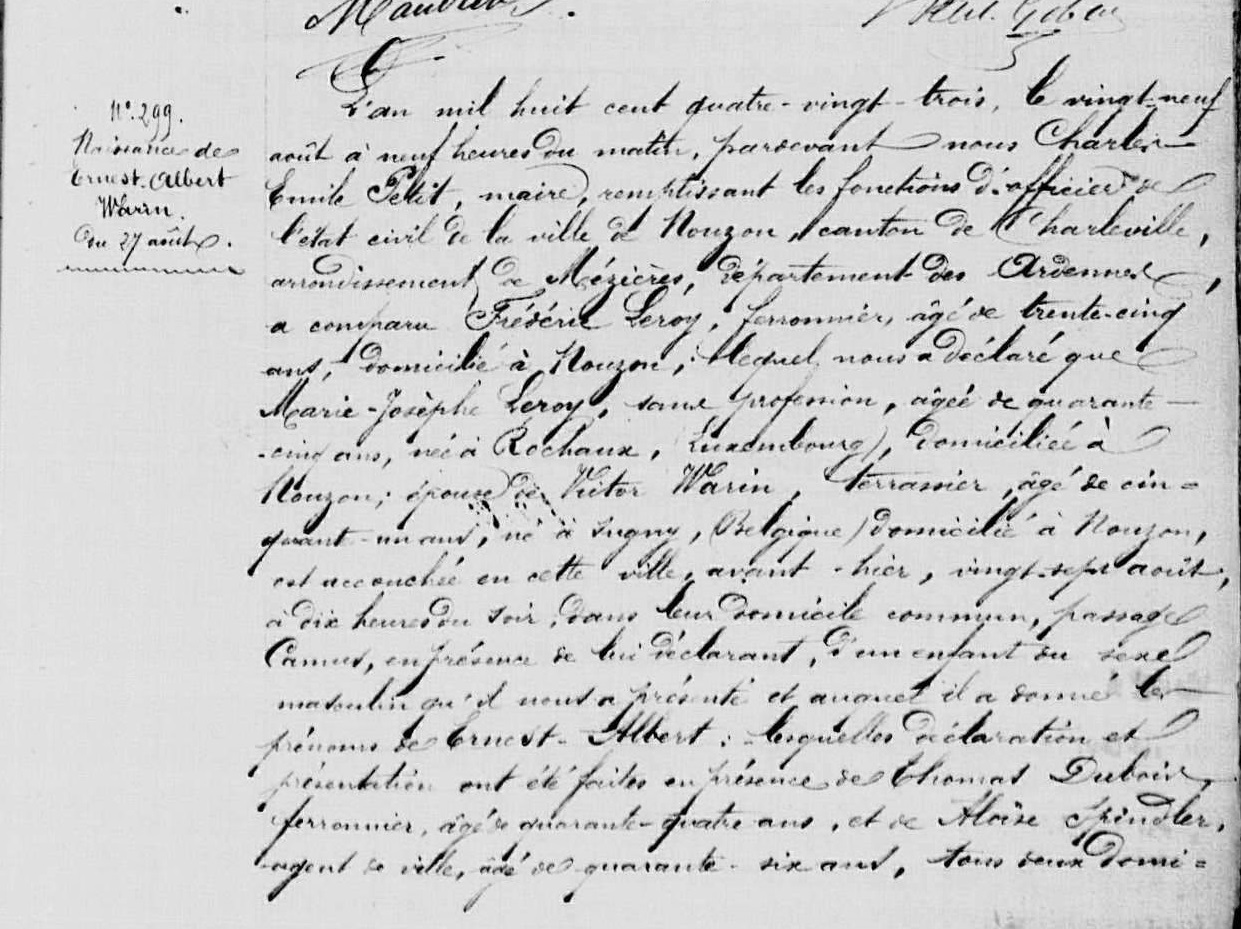 N.º 299.
Naissance de
Ernest-Albert
Warin.
Du 27 août.
L'an mil huit cent quatre-vingt-trois, le vingt-neuf
août à neuf heures du matin, pardevant nous Charles
Emile Petit, maire, remplissant les fonctions d'officier de
l'état civil de la ville de Nouzon, canton de Charleville,
arrondissement de Mézières, département des Ardennes,
a comparu Frédéric Leroy, ferronnier, âgé de trente-cinq
ans, domicilié à Nouzon; lequel nous a déclaré que
Marie-Josèphe Leroy, sans profession, âgée de quarante-
-cinq ans, née à Rochaux, (Luxembourg), domiciliée à
Nouzon; épouse de Victor Warin, terrassier, âgé de cin=
quant-un ans, né à Sugny, (Belgique) domicilié à Nouzon,
est accouchée en cette ville, avant-hier, vingt-sept août,
à dix heures du soir, dans leur domicile commun, passage
Camus, en présence de lui déclarant, d'un enfant du sexe
masculin qu'il nous a présenté et auquel il a donné les
prénoms de Ernest-Albert: lesquelles déclaration et
présentation ont été faites en présence de Thomas Dubois,
ferronnier, âgé de quarante-quatre ans, et de Aloïse Spindler,
agent de ville, âgé de quarante-six ans, tous deux domi=